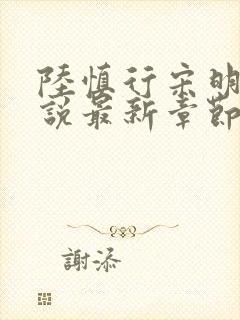 陸慎行宋明
說最新章節
謝添